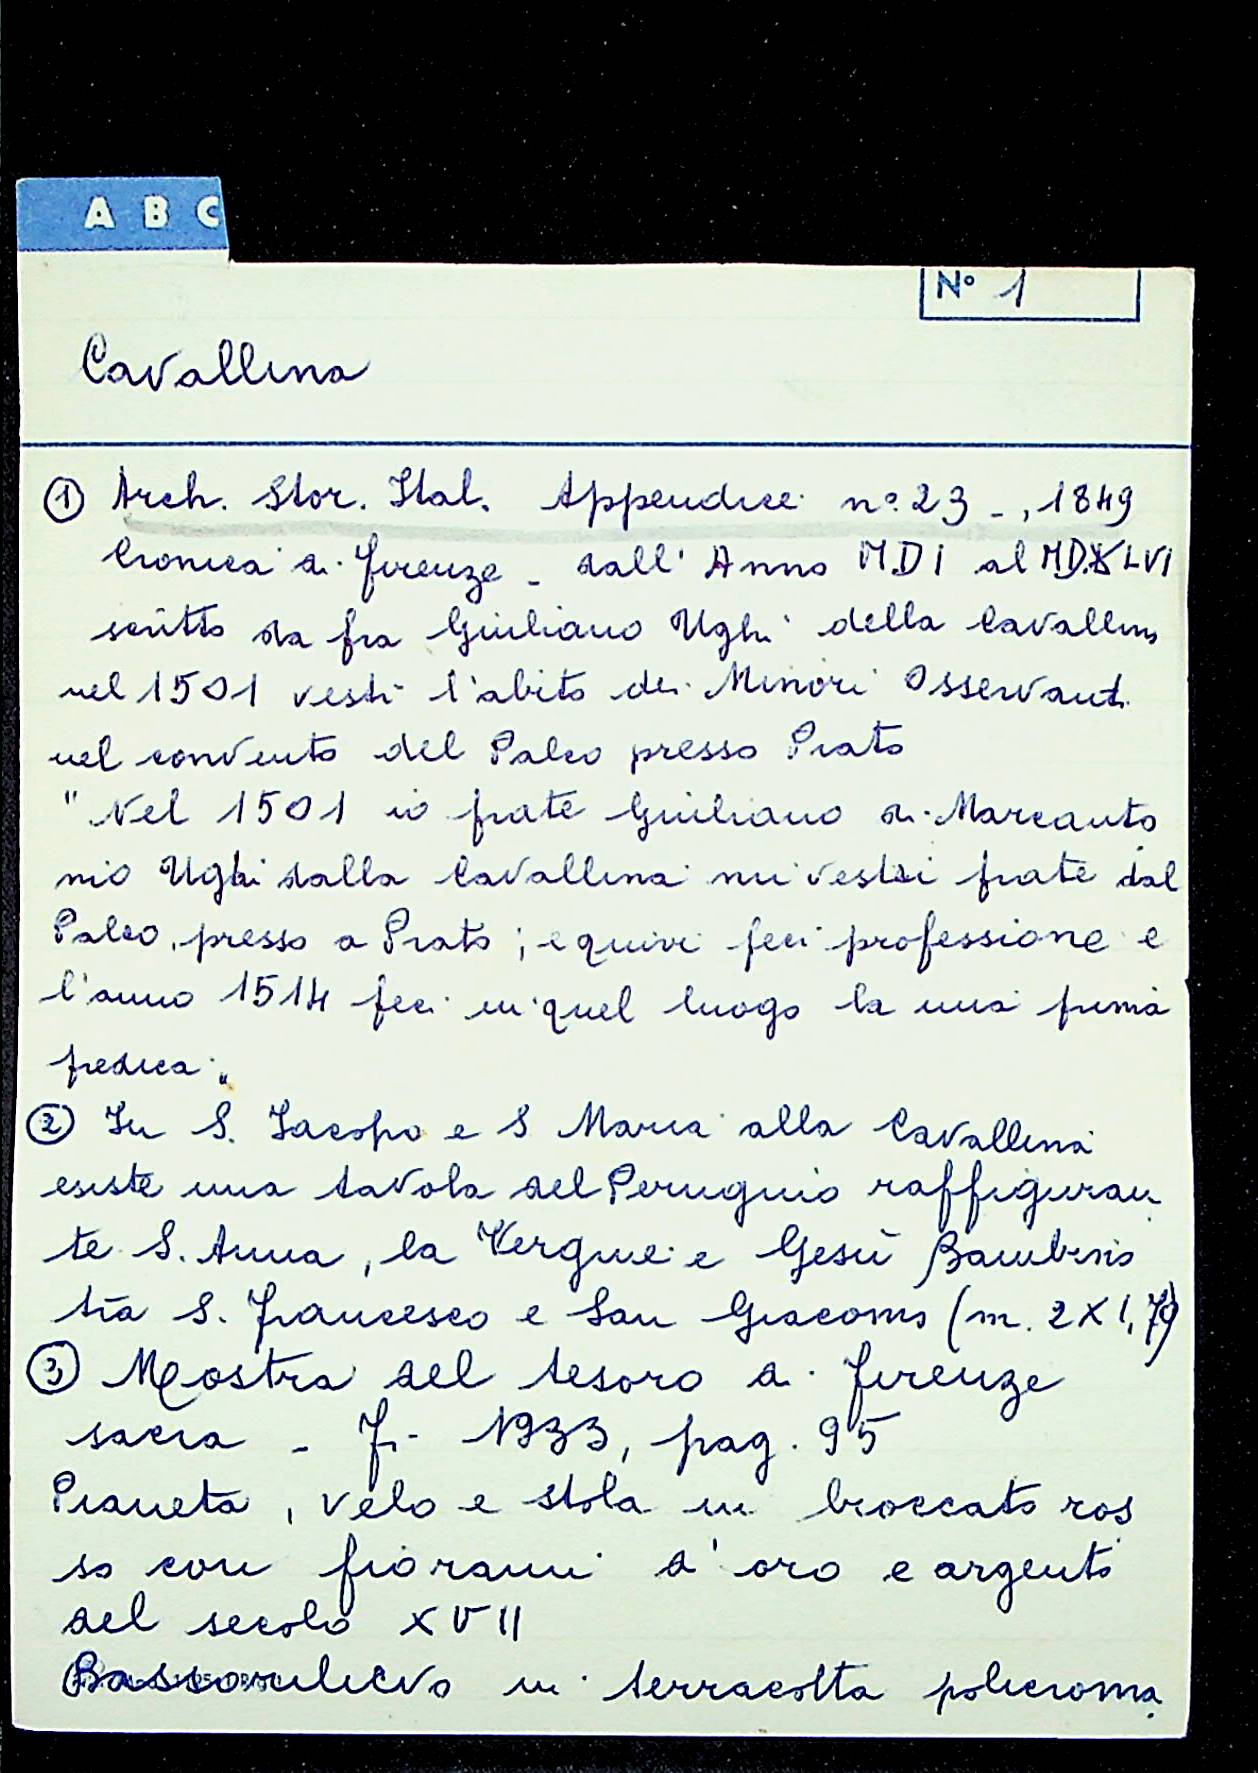 A B C
N° 1
Cavallina
① Arch. Stor. Ital. Appendice n° 23 -, 1849
Cronica di Firenze - dall'Anno MDI al MDXLVI
scritto da fra Giuliano Ughi della Cavallina
nel 1501 vestì l'abito dei Minori Osservanti
nel convento del Palco presso Prato
"Nel 1501 io frate Giuliano di Marcanto
nio Ughi dalla Cavallina mi vestii frate dal
Palco, presso a Prato; e quivi feci professione e
l'anno 1514 feci in quel luogo la mia prima
predica."
② In S. Jacopo e S Maria alla Cavallina
esiste una tavola del Perugino raffiguran
te S. Anna, la Vergine e Gesù Bambino
tra S. Francesco e San Giacomo (m. 2 X 1,79)
③ Mostra del tesoro di Firenze
sacra - Fi - 1933, pag. 95
Pianeta, velo e stola in broccato ros
so con fiorami d'oro e argento
del secolo XVII
Bassorilievo in terracotta policroma